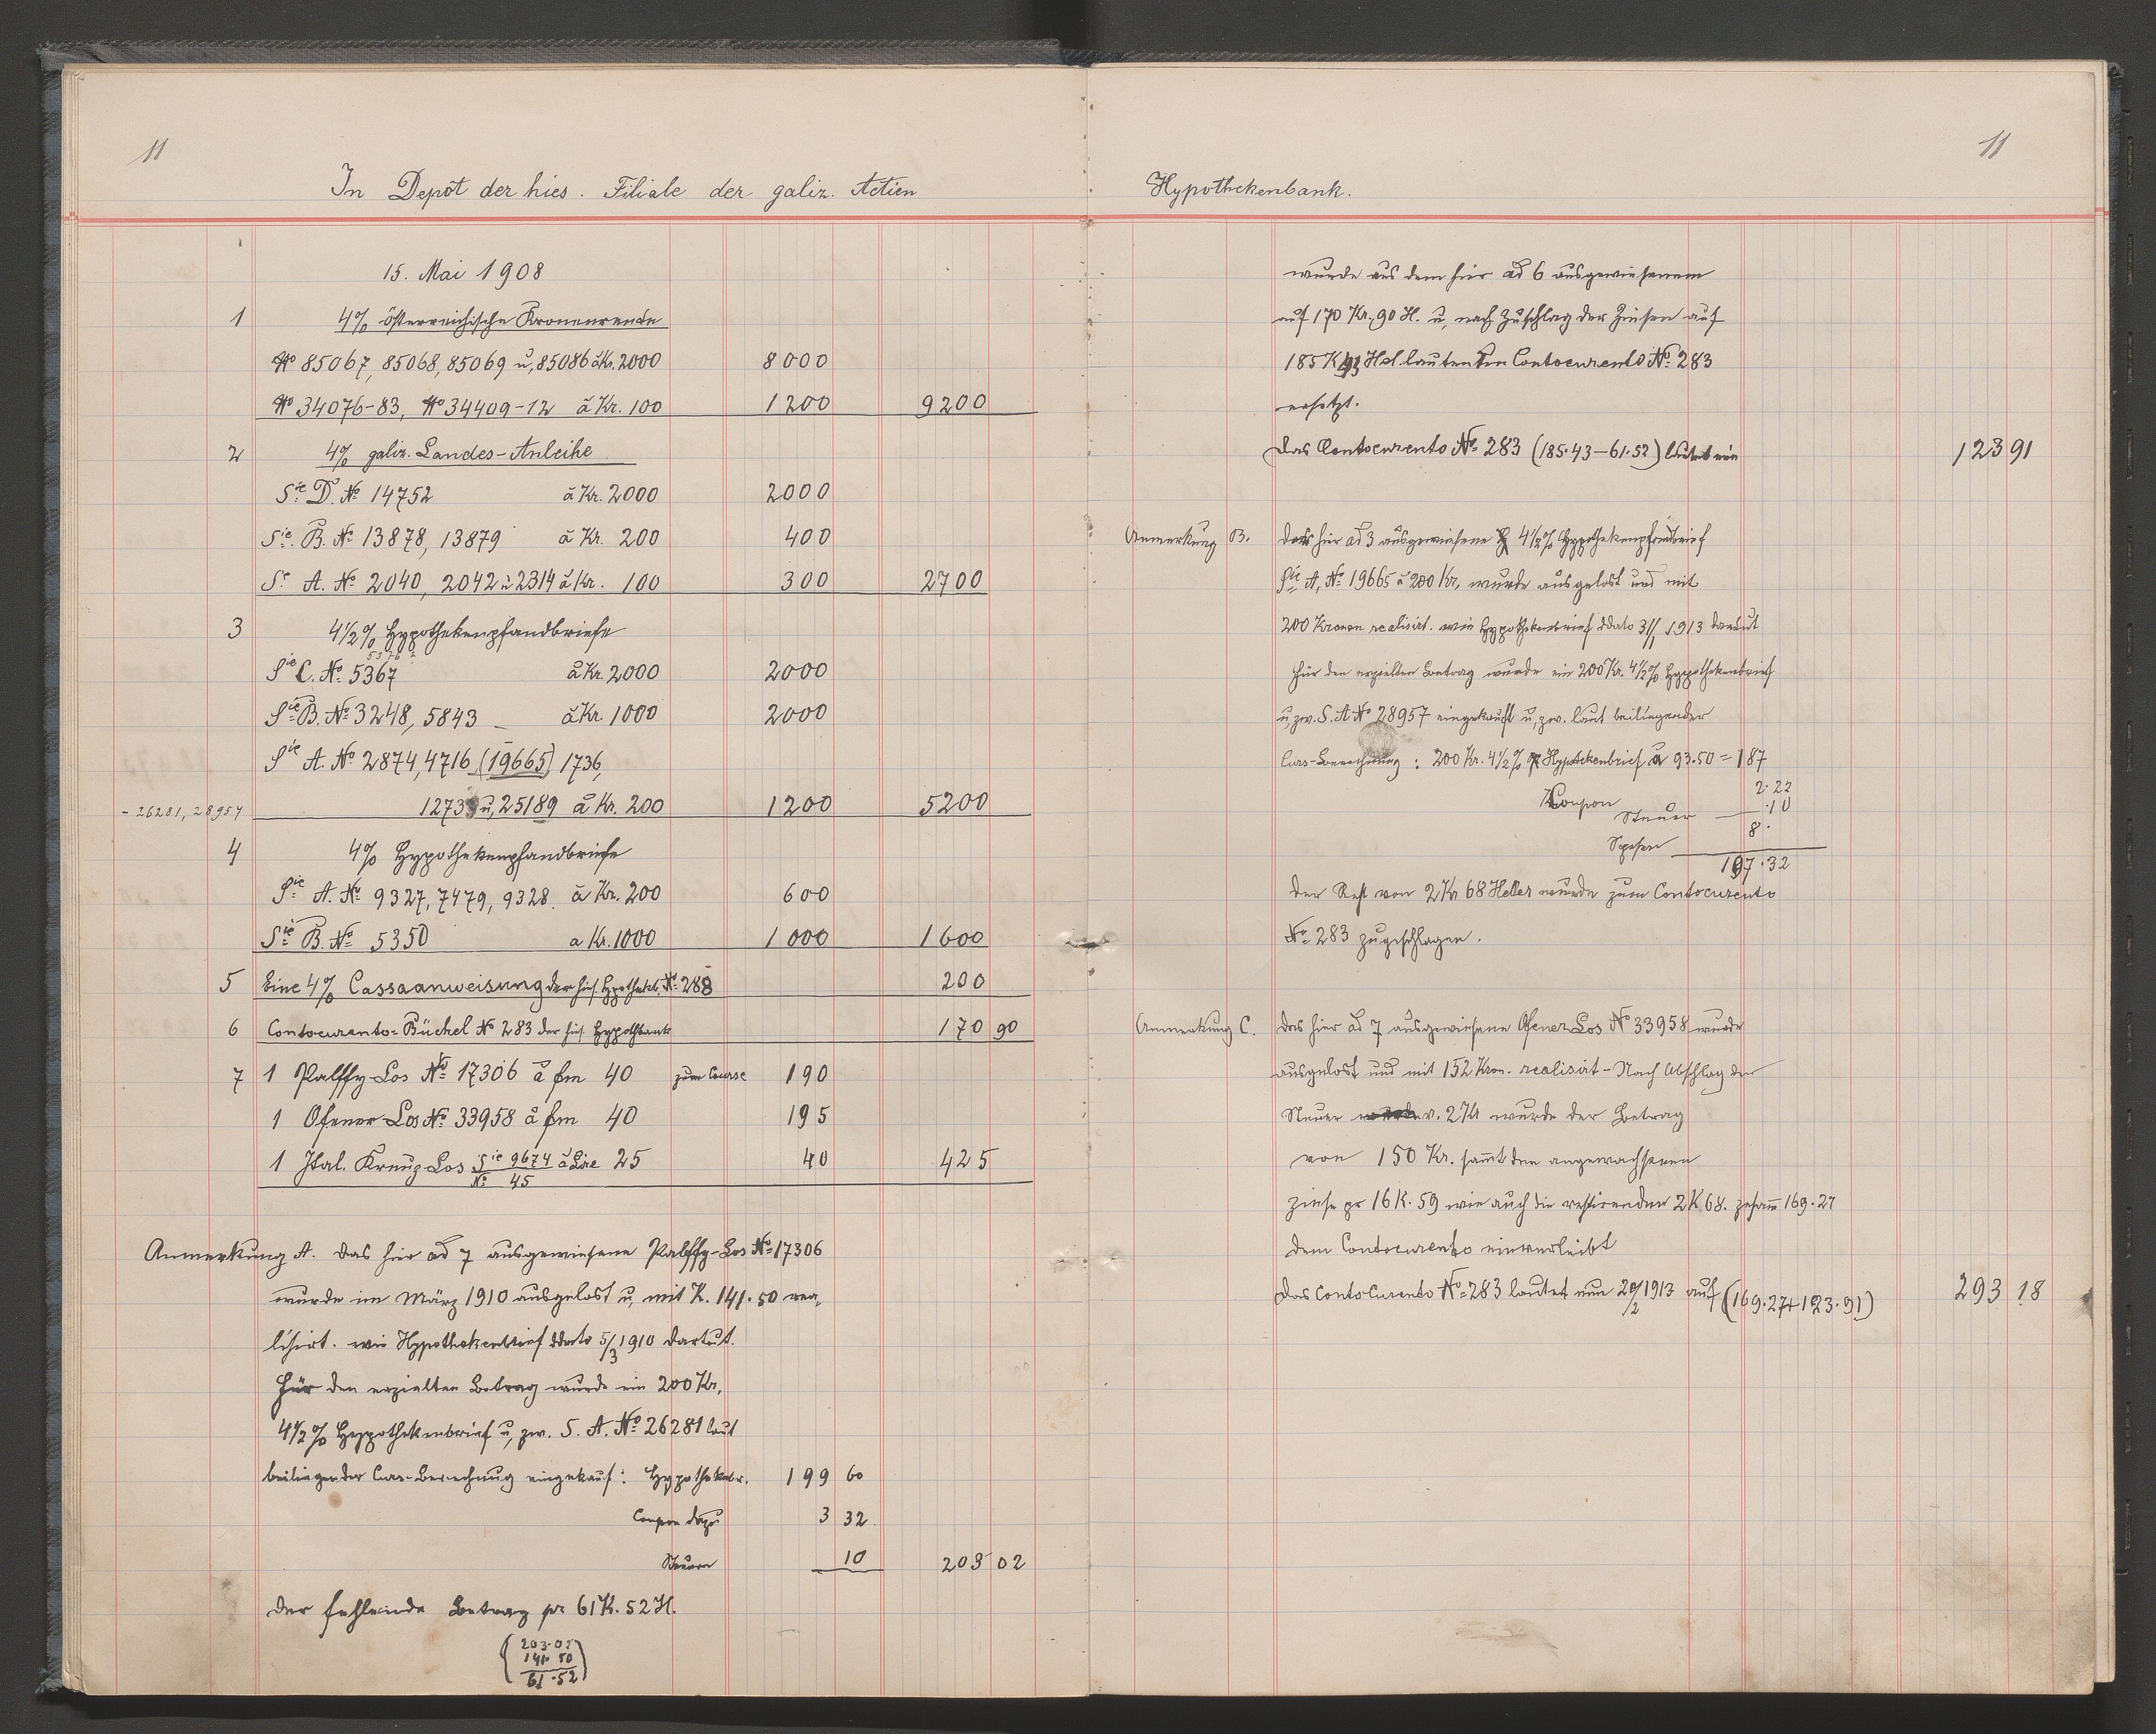 11
In Depôt der hies. Filiale der galiz. Actien
15. Mai 1908
1 4% österreichische Kronenrente
No 85067, 85068, 85069 u, 85086 à Kr. 2000 8000
No 34076-83, No 34409-12 à Kr. 100 1200 9200
2 4% galiz. Landes-Anleihe
Sie D. No 14752 à Kr. 2000 2000
Sie. B. No 13878, 13879 à Kr. 200 400
Se A. No 2040, 2042 u 2314 à Kr. 100 300 2700
3 4 1/2 % Hypothekenpfandbriefe
Sie C. No 5367 à Kr. 2000 2000
Sie B. No 3248, 5843 – à Kr. 1000 2000
Sie A. No 2874, 4716, (19665) 1736,
- 26281, 28957 12739 u, 25189 à Kr. 200 1200 5200
4 4% Hypothekenpfandbriefe
Sie A. No 9327, 7479, 9328. à Kr. 200 600
Sie B. No 5350 a Kr. 1000 1000 1600
5 Eine 4% Cassaanweisung der hies. Hypothekb. No 288 200
6 Contocurento-Büchel No 283 der hies. Hypothbank 170 90
7 1 Palffy-Los No 17306 à fm 40 zum Course 190
1 Ofener Los No 33958 à fm 40 195
1 Ital. Kreuz-Los Sie 9674 à Lire 25 40 425
No 45
Anmerkung A. Das hier ad 7 ausgewiesene Palffy-Los No 17306
wurde im März 1910 ausgelost u, mit K. 141.50 rea-
lisirt. wie Hypothekenbrief ddato 5/3 1910 dartut.
Für den erzielten Betrag wurde ein 200 Kr.
4 1/2 % Hypothekenbrief u, zw. S. A. No 26281 laut
beiliegender Curs-Berechnung eingekauf: Hypothekenbr. 199 60
Coupon dazu 3 32
Steuern 10 203 02
Der fehlende Betrag pr 61 K. 52 H.
(203.02
141.50
61.52)
11
Hypothekenbank.
wurde aus dem hier ad 6 ausgewiesenem
auf 170 Kr. 90 H. u, nach Zuschlag der Zinsen auf
185 K 43 Hel. lautenden Contocurento No 283
ersetzt.
Das Contocurento No 283 (185.43-61.52) lautet nun 123 91
Anmerkung B. Das hier ad 3 ausgewiesene 4 1/2 % Hypothekenpfandbrief
Sie A, No 19665 à 200 Kr, wurde ausgelost und mit
200 Kronen realisirt. wie Hypothekenbrief ddato 3/1 1913 dartut
Für den erzielten Betrag wurde ein 200 Kr. 4 1/2 % Hypothekenbrief
u, zw. S. A No 28957 eingekauft u, zw. laut beiliegender
Curs-Berechnung: 200 Kr. 4 1/2 % Hypothekenbrief a 93.50 = 187
Coupon 2.22
Steuer – .10
Spesen 8.
197.32
Der Rest von 2 Kr 68 Heller wurde zum Contocurento
No 283 zugeschlagen.
Anmerkung C. Das hier ad 7 ausgewiesene Ofener Los No 33958 wurde
ausgelost und mit 152 Kron. realisirt – Nach Abschlag der
Steuer v. 2 Kr wurde der Betrag
von 150 Kr. sammt den angewachsenen
Zinse pr 16 K. 59 wie auch die restirenden 2 K 68. zusam 169.27
dem Contocurento einverleibt
Das Conto Curento No 283 lautet nun 20/2 1913 auf (169.27+123.91) 293 18